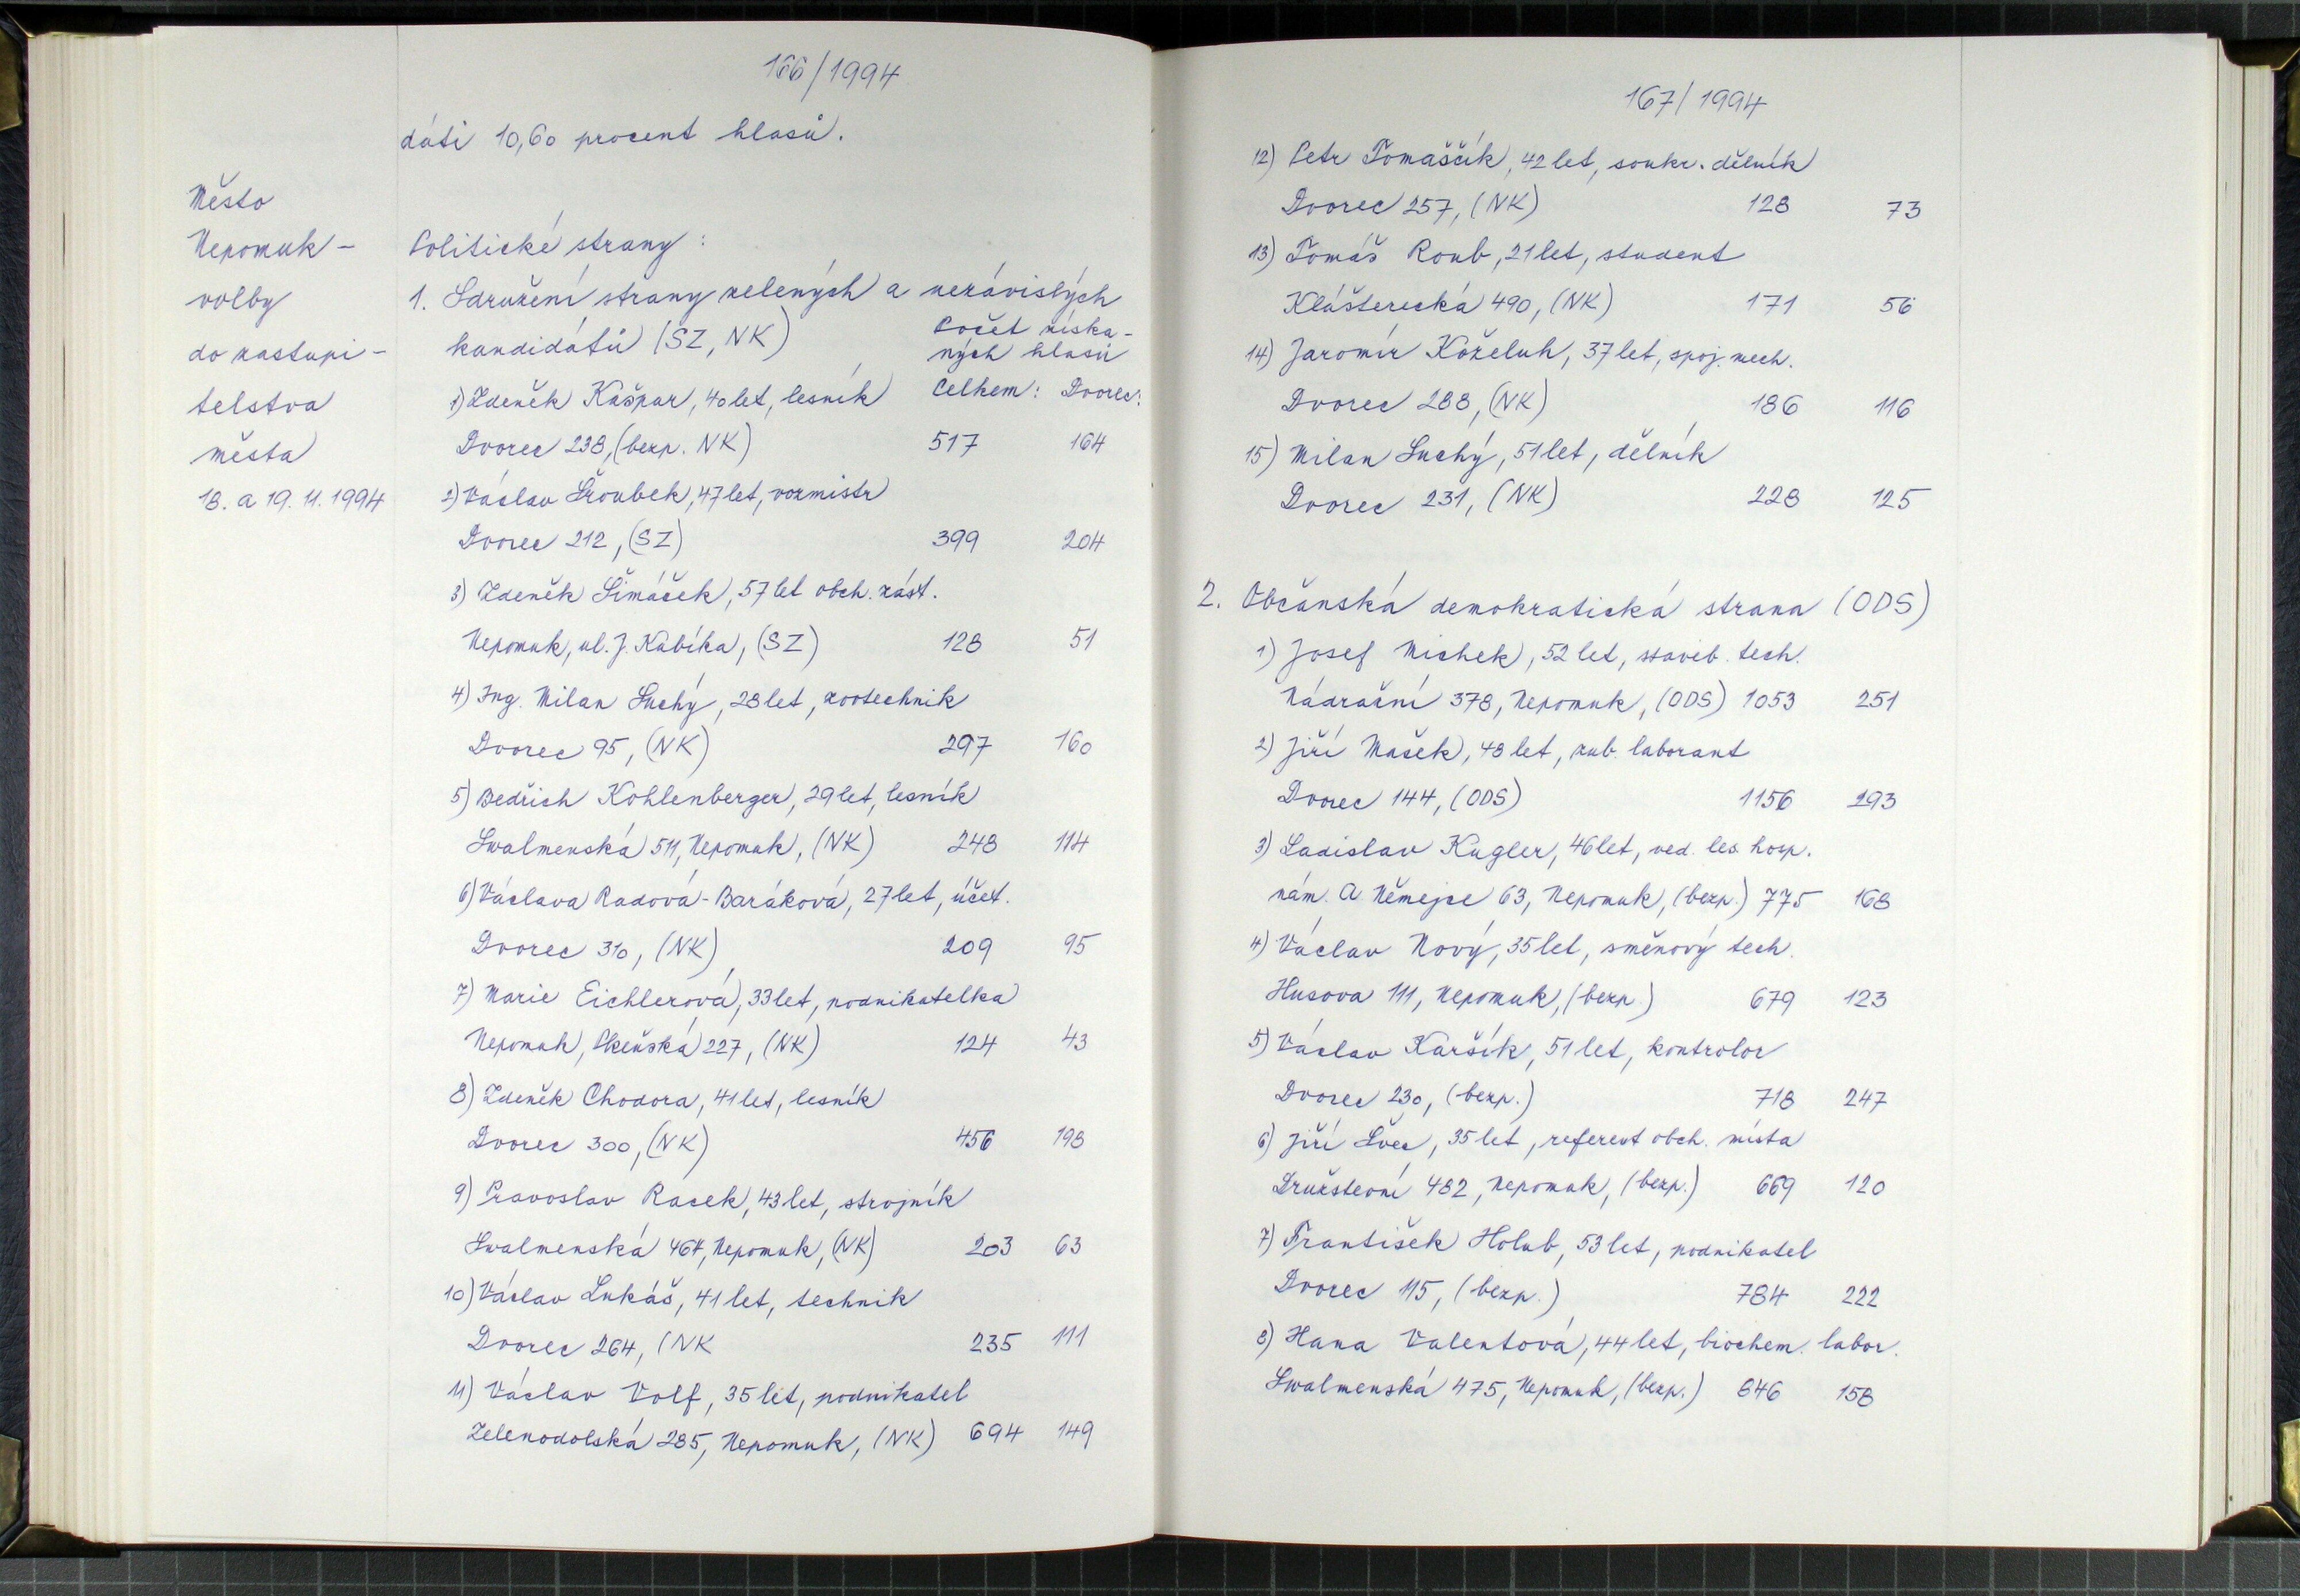 166/1994
dáti 10,60 procent hlasů.
Město
Nepomuk -
volby
do zastupi-
telstva
města
18. a 19. 11. 1994
Politické strany:
1. Sdružení strany zelených a nezávislých
kandidátů (SZ, NK)
Počet získa-
ných hlasů
Celkem: Dvorec:
1) Zdeněk Kašpar, 40 let, lesník
Dvorec 238, (bezp. NK) 517 164
2) Václav Šroubek, 47 let, vozmistr
Dvorec 212, (SZ) 399 204
3) Zdeněk Šimáček, 57 let obch. zást.
Nepomuk, ul. J. Kubíka, (SZ) 128 51
4) Ing. Milan Suchý, 28 let, zootechnik
Dvorec 95, (NK) 297 160
5) Bedřich Kohlenberger, 29 let, lesník
Swalmenská 511, Nepomuk, (NK) 248 114
6) Václava Radová-Baráková, 27 let, účet.
Dvorec 310, (NK) 209 95
7) Marie Eichlerová, 33 let, podnikatelka
Nepomuk, Plzeňská 227, (NK) 124 43
8) Zdeněk Chodora, 41 let, lesník
Dvorec 300, (NK) 456 198
9) Pravoslav Racek, 43 let, strojník
Swalmenská 464, Nepomuk, (NK) 203 63
10) Václav Lukáš, 41 let, technik
Dvorec 264, (NK 235 111
11) Václav Volf, 35 let, podnikatel
Zelenodolská 285, Nepomuk, (NK) 694 149
167/1994
12) Petr Tomaščík, 42 let, soukr. dělník
Dvorec 257, (NK) 128 73
13) Tomáš Roub, 21 let, student
Klášterecká 490, (NK) 171 56
14) Jaromír Koželuh, 37 let, spoj. mech.
Dvorec 288, (NK) 186 116
15) Milan Suchý, 51 let, dělník
Dvorec 231, (NK) 228 125
2. Občanská demokratická strana (ODS)
1) Josef Michek, 52 let, staveb. tech.
Nádražní 378, Nepomuk, (ODS) 1053 251
2) Jiří Mašek, 48 let, zub. laborant
Dvorec 144, (ODS) 1156 293
3) Ladislav Kugler, 46 let, ved. les. hosp.
nám. A. Němejce 63, Nepomuk, (bezp.) 775 168
4) Václav Nový, 35 let, směnový tech.
Husova 111, Nepomuk, (bezp.) 679 123
5) Václav Karšík, 51 let, kontrolor
Dvorec 230, (bezp.) 718 247
6) Jiří Švec, 35 let, referent obch. místa
Družstevní 482, Nepomuk, (bezp.) 669 120
7) František Holub, 53 let, podnikatel
Dvorec 115, (bezp.) 784 222
8) Hana Valentová, 44 let, biochem. labor.
Swalmenská 475, Nepomuk, (bezp.) 846 158